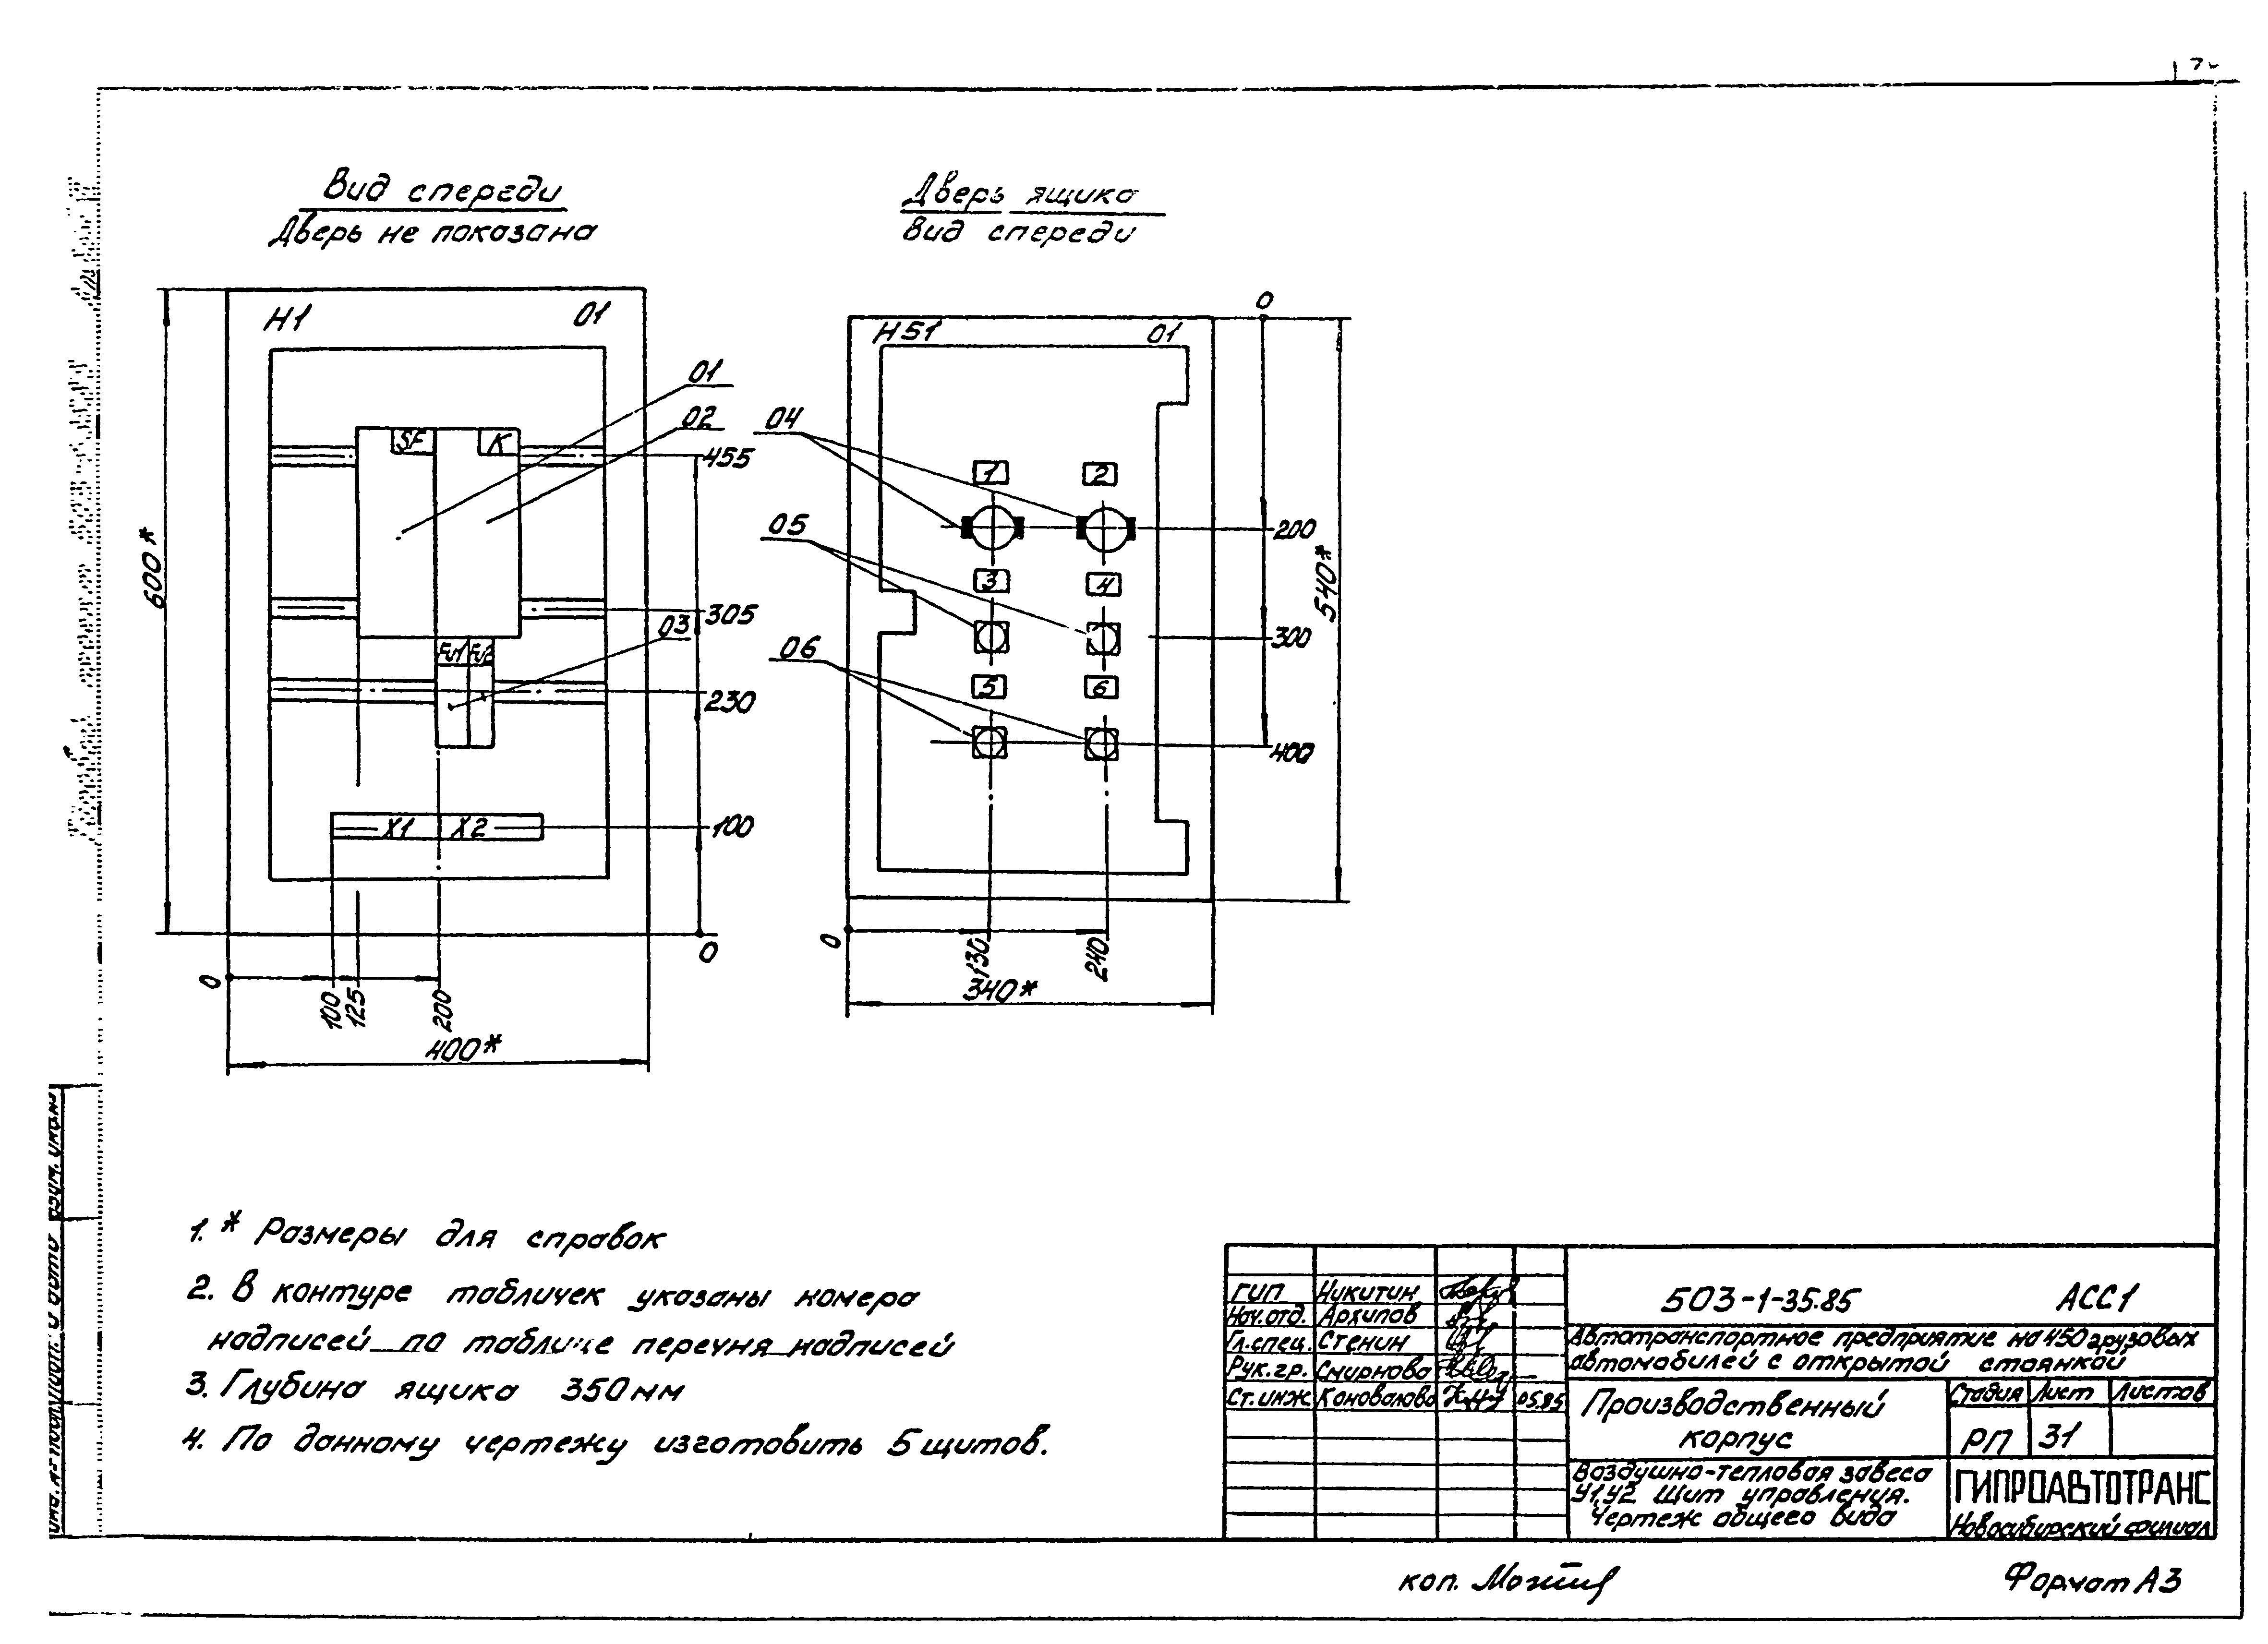 Вид спереди
Дверь не показана
Дверь ящика
Вид спереди
Н1 01
01
02
SF K
455
600*
305
03
Fu1 Fu2
230
X1 X2
100
0
0
100
125
200
400*
0
Н51 01
04
1 2
200
05
3 4
540*
300
06
5 6
400
0
130
240
340*
1. * Размеры для справок
2. В контуре табличек указаны номера
надписей по таблице перечня надписей
3. Глубина ящика 350 мм
4. По данному чертежу изготовить 5 щитов.
ГИП Никитин
Нач.отд. Архипов
Гл.спец. Стенин
Рук.гр. Смирнова
Ст.инж Коновалова 05.85
503-1-35.85 АСС1
Автотранспортное предприятие на 450 грузовых
автомобилей с открытой стоянкой
Производственный
корпус
Стадия Лист Листов
РП 31
Воздушно-тепловая завеса
У1,У2 Щит управления.
Чертеж общего вида
ГИПРОАВТОТРАНС
Новосибирский филиал
коп.
Формат А3